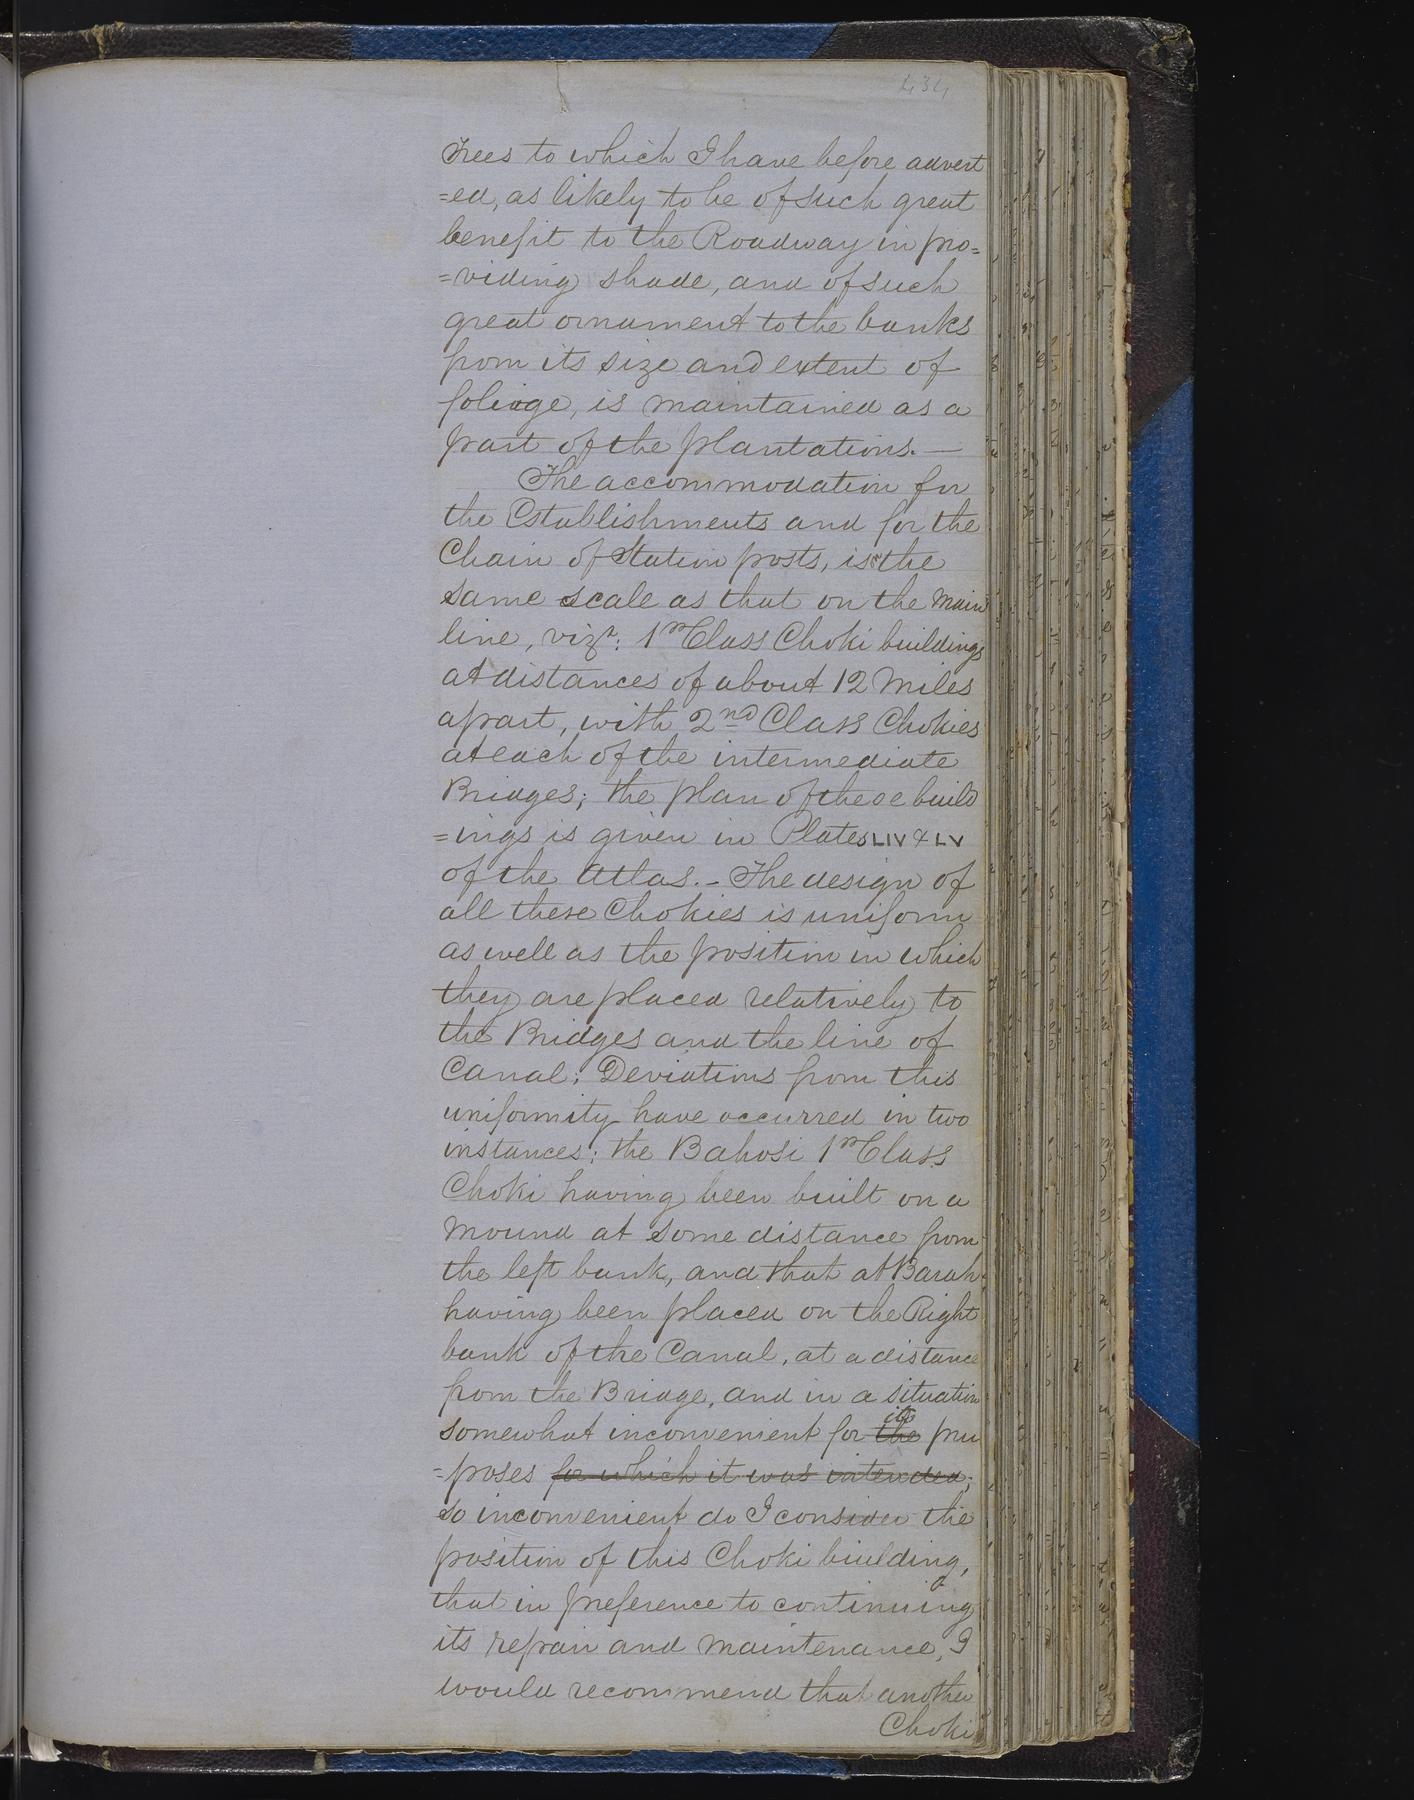 434
Trees to which I have before advert
=ed, as likely to be of such great
benefit to the Roadway in pro=
=viding shade, and of such
great ornament to the banks
from its size and extent of
foliage, is maintained as a
part of the plantations. —
The accommodation for
the Establishments and for the
Chain of Station posts, is the
same scale as that on the Main
line, vizt: 1st Class Choki buildings
at distances of about 12 Miles
apart, with 2nd Class Chokies
at each of the intermediate
Bridges; the plan of these build
=ings is given in Plates LIV & LV
of the Atlas. – The design of
all these Chokies is uniform
as well as the position in which
they are placed relatively to
the Bridges and the line of
Canal; Deviations from this
uniformity have occurred in two
instances; the Bahosi 1st Class
Choki having been built on a
Mound at some distance from
the left bank, and that at Barah
having been placed on the Right
bank of the Canal, at a distance
from the Bridge, and in a situation
its
somewhat inconvenient for the pur
=poses for which it was intended;
so inconvenient do I consider the
position of this Choki building,
that in preference to continuing
its repair and maintenance, I
would recommend that another
Choki